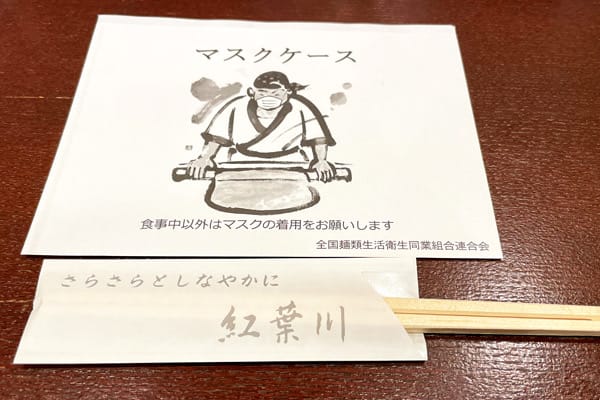 マスクケース
食事中以外はマスクの着用をお願いします
全国麺類生活衛生同業組合連合会
さらさらとしなやかに
紅葉川